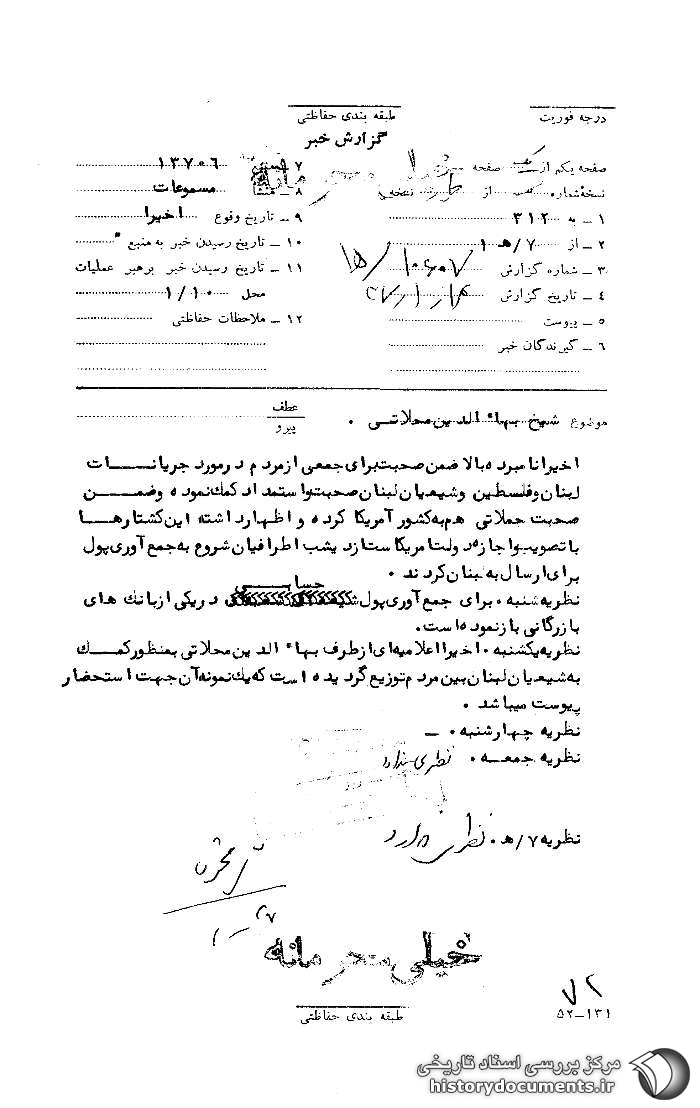 درجه فوریت
طبقه بندی حفاظتی
گزارش خبر
صفحه یکم از یک صفحه
نسخهٔ شماره یک از نسخه
۱ – به ۳۱۲
۲ – از ۷/هـ ۱
۳ – شماره گزارش ۱۵/۱۰۶۰۷
۴ – تاریخ گزارش
۵ – پیوست
۶ – گیرندگان خبر
۷ – منبع ۱۳۷۰۶
۸ – منشأ مسموعات
۹ – تاریخ وقوع اخیرا
۱۰ – تاریخ رسیدن خبر به منبع "
۱۱ – تاریخ رسیدن خبر برهبر عملیات
محل ۱/۱۰
۱۲ – ملاحظات حفاظتی
موضوع شیخ بهاء الدین محلاتی .
عطف
پیرو
اخیرا نامبرده بالا ضمن صحبت برای جمعی از مردم در مورد جریانات
لبنان و فلسطین و شیعیان لبنان صحبت و استمداد کمک نموده و ضمن
صحبت حملاتی هم به کشور آمریکا کرده و اظهار داشته این کشتارها
با تصویب و اجازه دولت امریکاست از دیشب اطرافیان شروع به جمع آوری پول
برای ارسال به لبنان کردند .
نظریه شنبه . برای جمع آوری پول حسابی در یکی از بانک های
بازرگانی باز نموده است.
نظریه یکشنبه . اخیرا اعلامیه ای از طرف بهاء الدین محلاتی بمنظور کمک
به شیعیان لبنان بین مردم توزیع گردیده است که یک نمونه آن جهت استحضار
پیوست میباشد .
نظریه چهارشنبه . –
نظریه جمعه . نظری ندارد
نظریه ۷/هـ . نظری ندارد
خیلی محرمانه
طبقه بندی حفاظتی
۷۲
۵۲–۱۳۱
مرکز بررسی اسناد تاریخی
historydocuments.ir